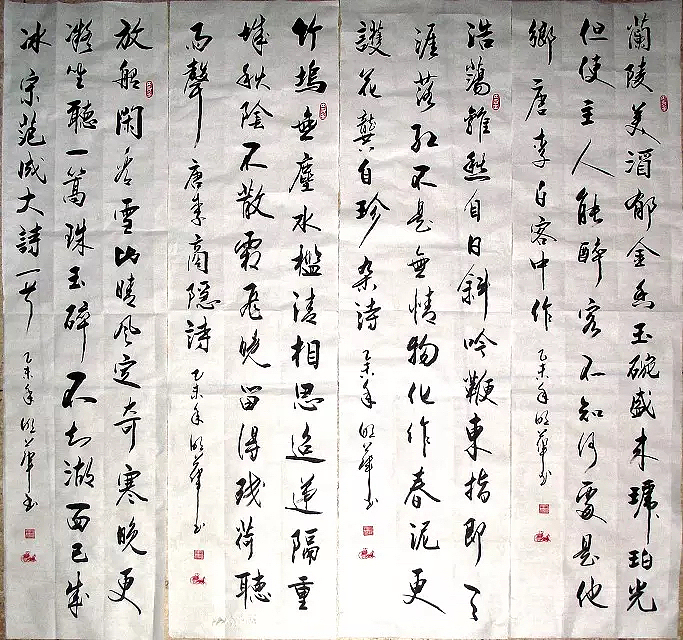 蘭陵美酒郁金香玉碗盛来琥珀光
但使主人能醉客不知何處是他
鄉 唐李白客中作 乙未年明華书
浩蕩離愁白日斜吟鞭東指即天
涯落红不是無情物化作春泥更
護花龔自珍杂詩 乙未年明華书
竹塢無塵水檻清相思迢遞隔重
城秋陰不散霜飛晚留得残荷聽
雨聲 唐李商隱詩 乙未年明華书
放船閑看雪山晴风定奇寒晚更
凝坐聽一篙珠玉碎不知湖面已成
冰 宗范成大詩一首 乙未年明華书